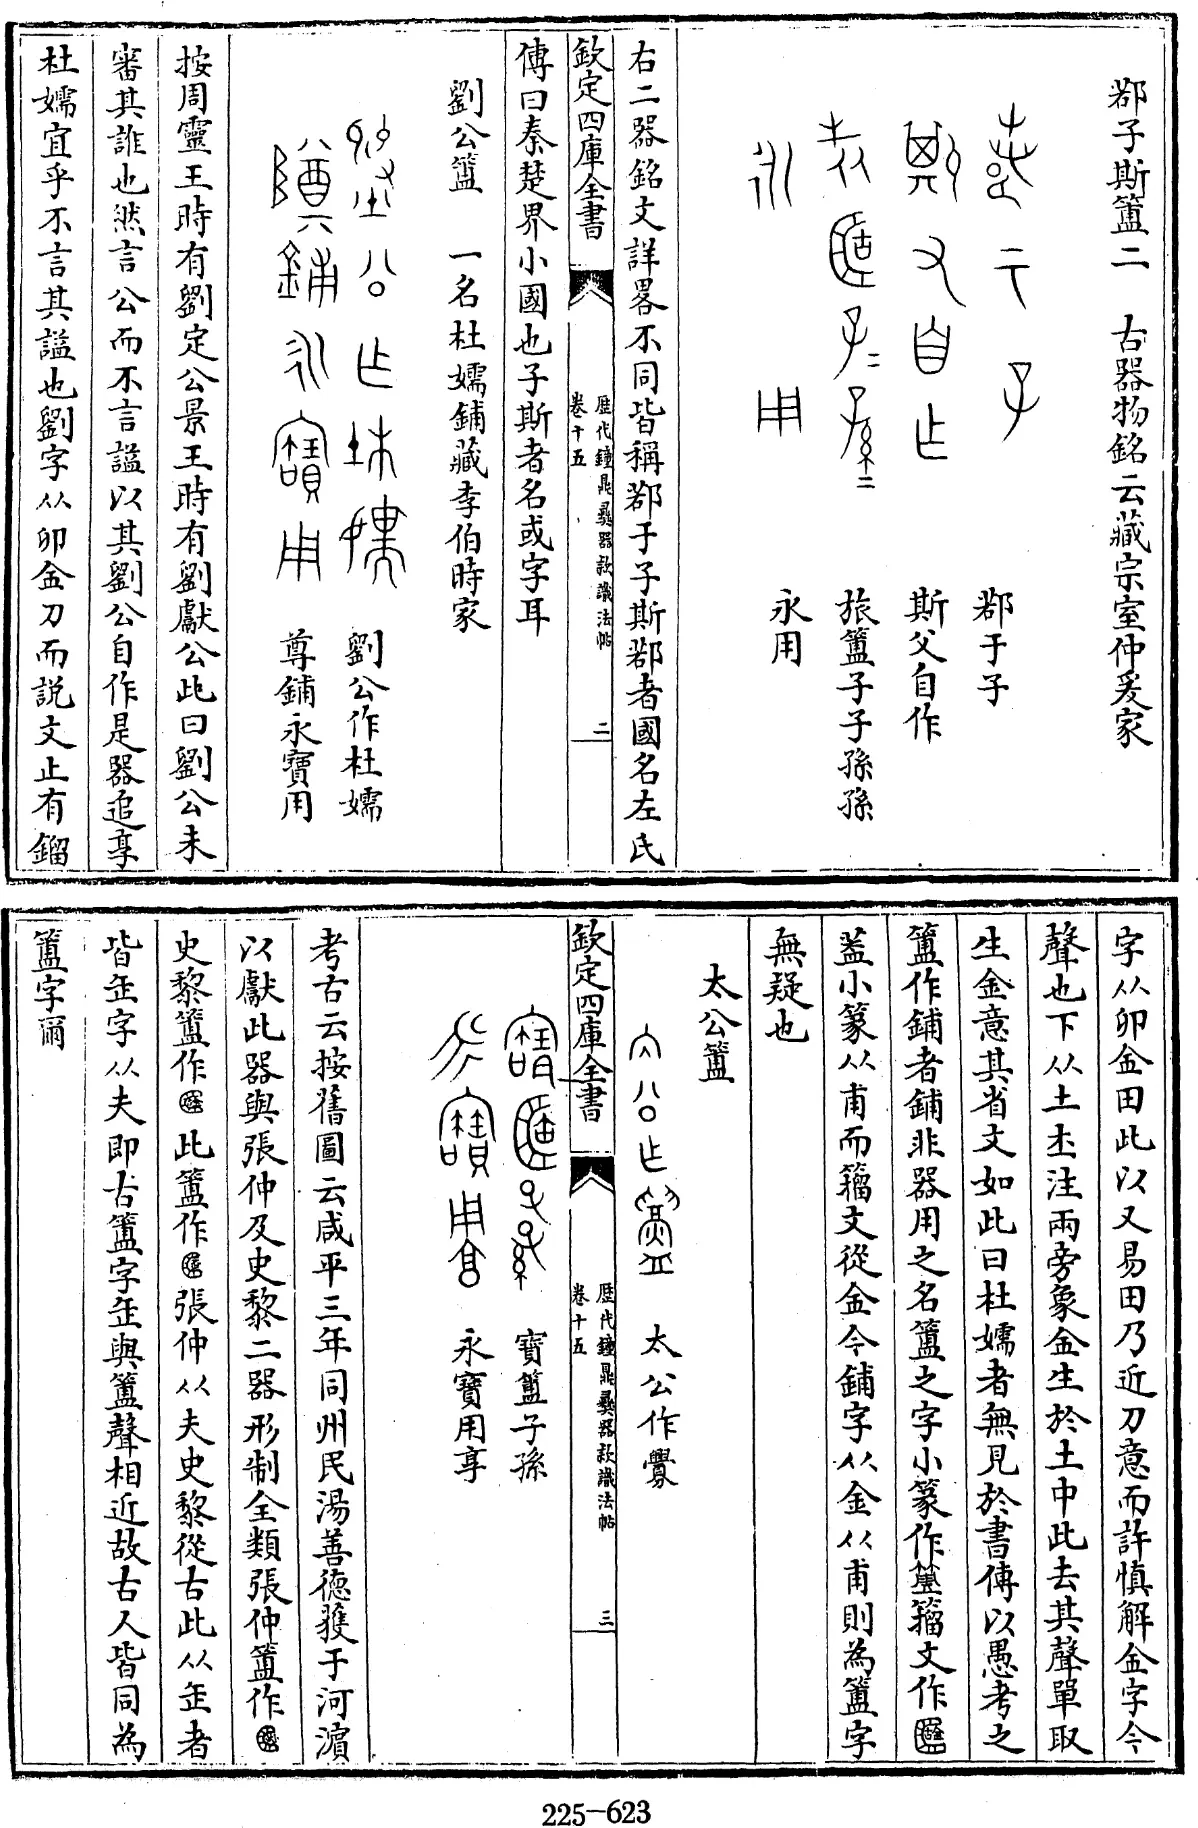 鄀子斯簠二　古器物銘云藏宗室仲爰家
鄀于子
斯父自作
旅簠子子孫孫
永用
右二器銘文詳畧不同皆稱鄀于子斯鄀者國名左氏
欽定四庫全書
歴代鐘鼎彝器款識法帖
卷十五
二
傳曰秦楚界小國也子斯者名或字耳
劉公簠　一名杜嬬鋪藏李伯時家
劉公作杜嬬
尊鋪永寶用
按周靈王時有劉定公景王時有劉獻公此曰劉公未
審其誰也然言公而不言謚以其劉公自作是器追享
杜嬬宜乎不言其謚也劉字从卯金刀而説文止有鎦
字从卯金田此以又易田乃近刀意而許慎解金字今
聲也下从土𡈼注兩旁象金生於土中此去其聲單取
生金意其省文如此曰杜嬬者無見於書傳以愚考之
簠作鋪者鋪非器用之名簠之字小篆作簠籀文作
蓋小篆从甫而籀文從金今鋪字从金从甫則為簠字
無疑也
太公簠
太公作
欽定四庫全書
歴代鐘鼎彝器款識法帖
卷十五
三
寶簠子孫
永寶用享
考古云按舊圖云咸平三年同州民湯善德獲于河濵
以獻此器與張仲及史黎二器形制全類張仲簠作
史黎簠作　此簠作　張仲从夫史黎從古此从𦈢者
皆𦈢字从夫即古簠字𦈢與簠聲相近故古人皆同為
簠字爾
225-623